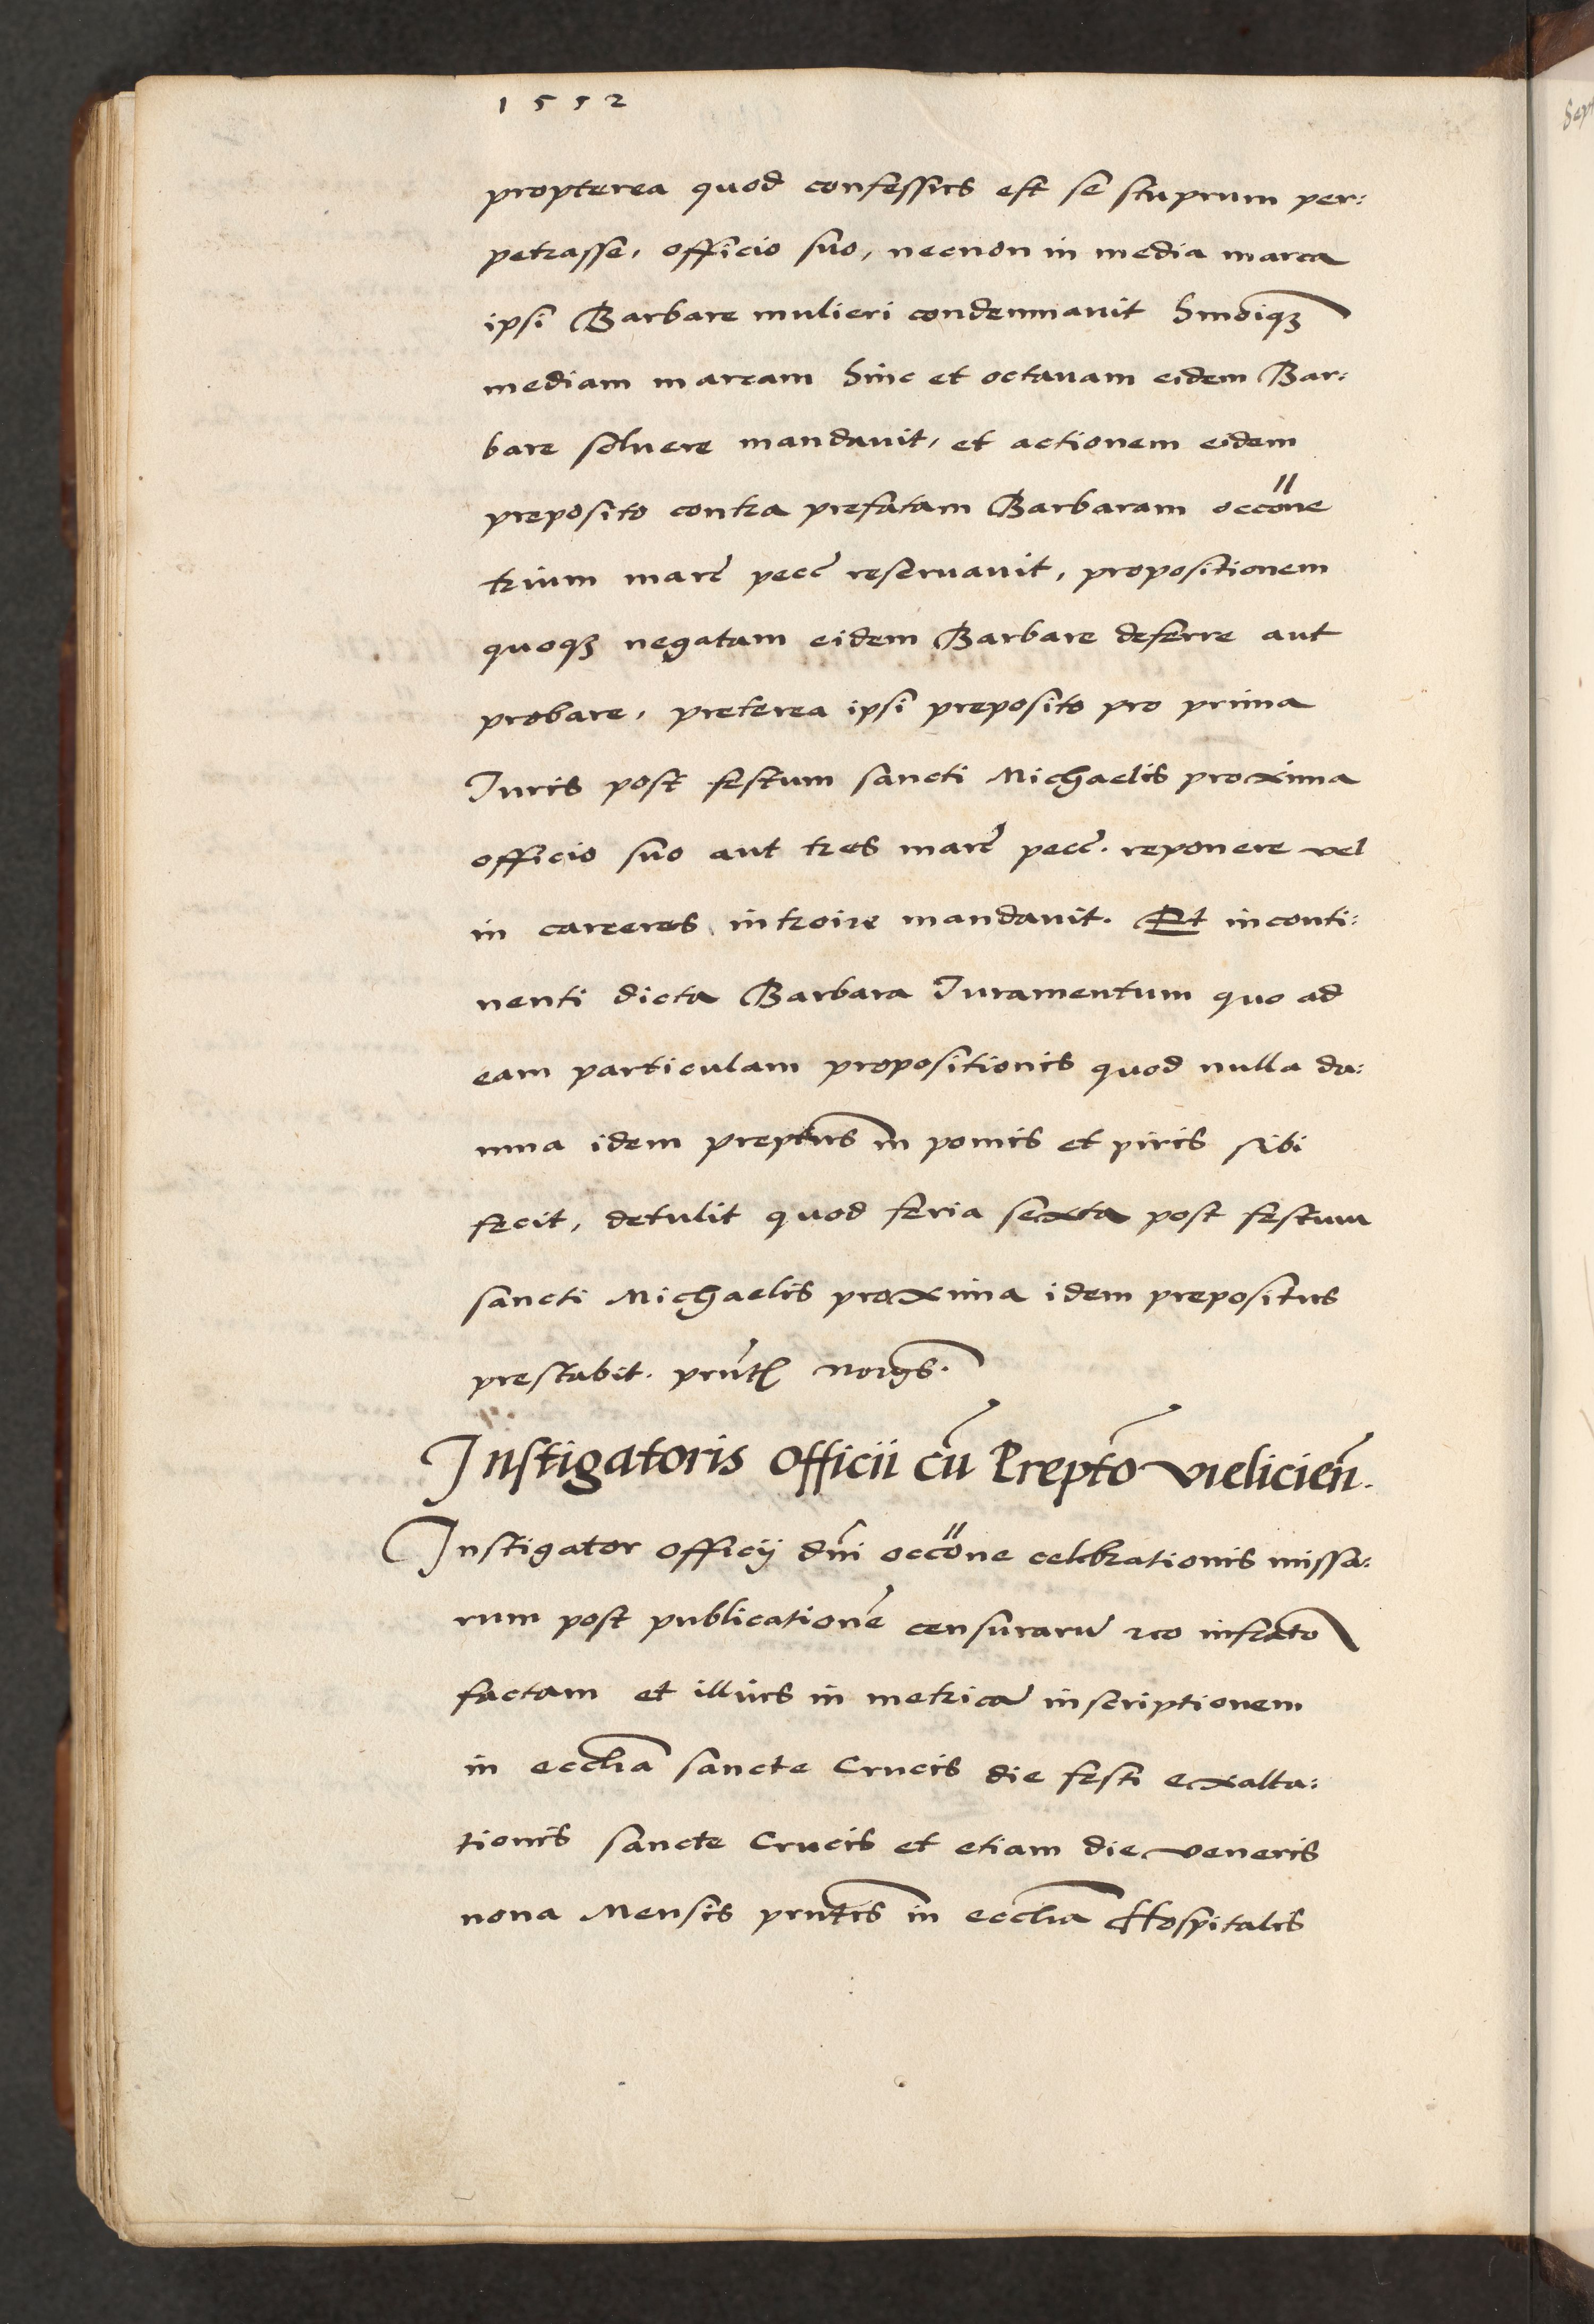 1552
propterea quod confessus est se stuprum per:
petrasse, officio suo, necnon in media marca
ipsi Barbare mulieri condemnavit hmoiqȝ
mediam marcam hinc et octavam eidem Bar:
bare solvere mandavit, et actionem eidem
preposito contra prefatam Barbaram occōne
trium marc̄ pecc̄ reservavit, propositionem
quoqȝ negatam eidem Barbare deferre aut
probare, preterea ipsi preposito pro prima
Iuris post festum sancti Michaelis proxima
officio suo aut tres marc̄ pecc̄. reponere vel
in carceres introire mandavit. Et inconti:
nenti dicta Barbara Iuramentum quo ad
eam particulam propositionis quod nulla da:
mna idem prepтus in pomis et piris sibi
fecit, detulit quod feria sexta post festum
sancti Michaelis proxima idem prepositus
prestabit. prn̄tꝭ norgs.
Instigatoris officii cū Prepto vieliciēn.
Instigator officij dn̄i occōne celebrationis missa:
rum post publicationē censurarū
factam et illius in metricā inscriptionem
in ecclīa sancte Crucis die festi exalta:
tionis sancte Crucis et etiam die veneris
nona Mensis prn̄tis in ecclīa Hospitalis